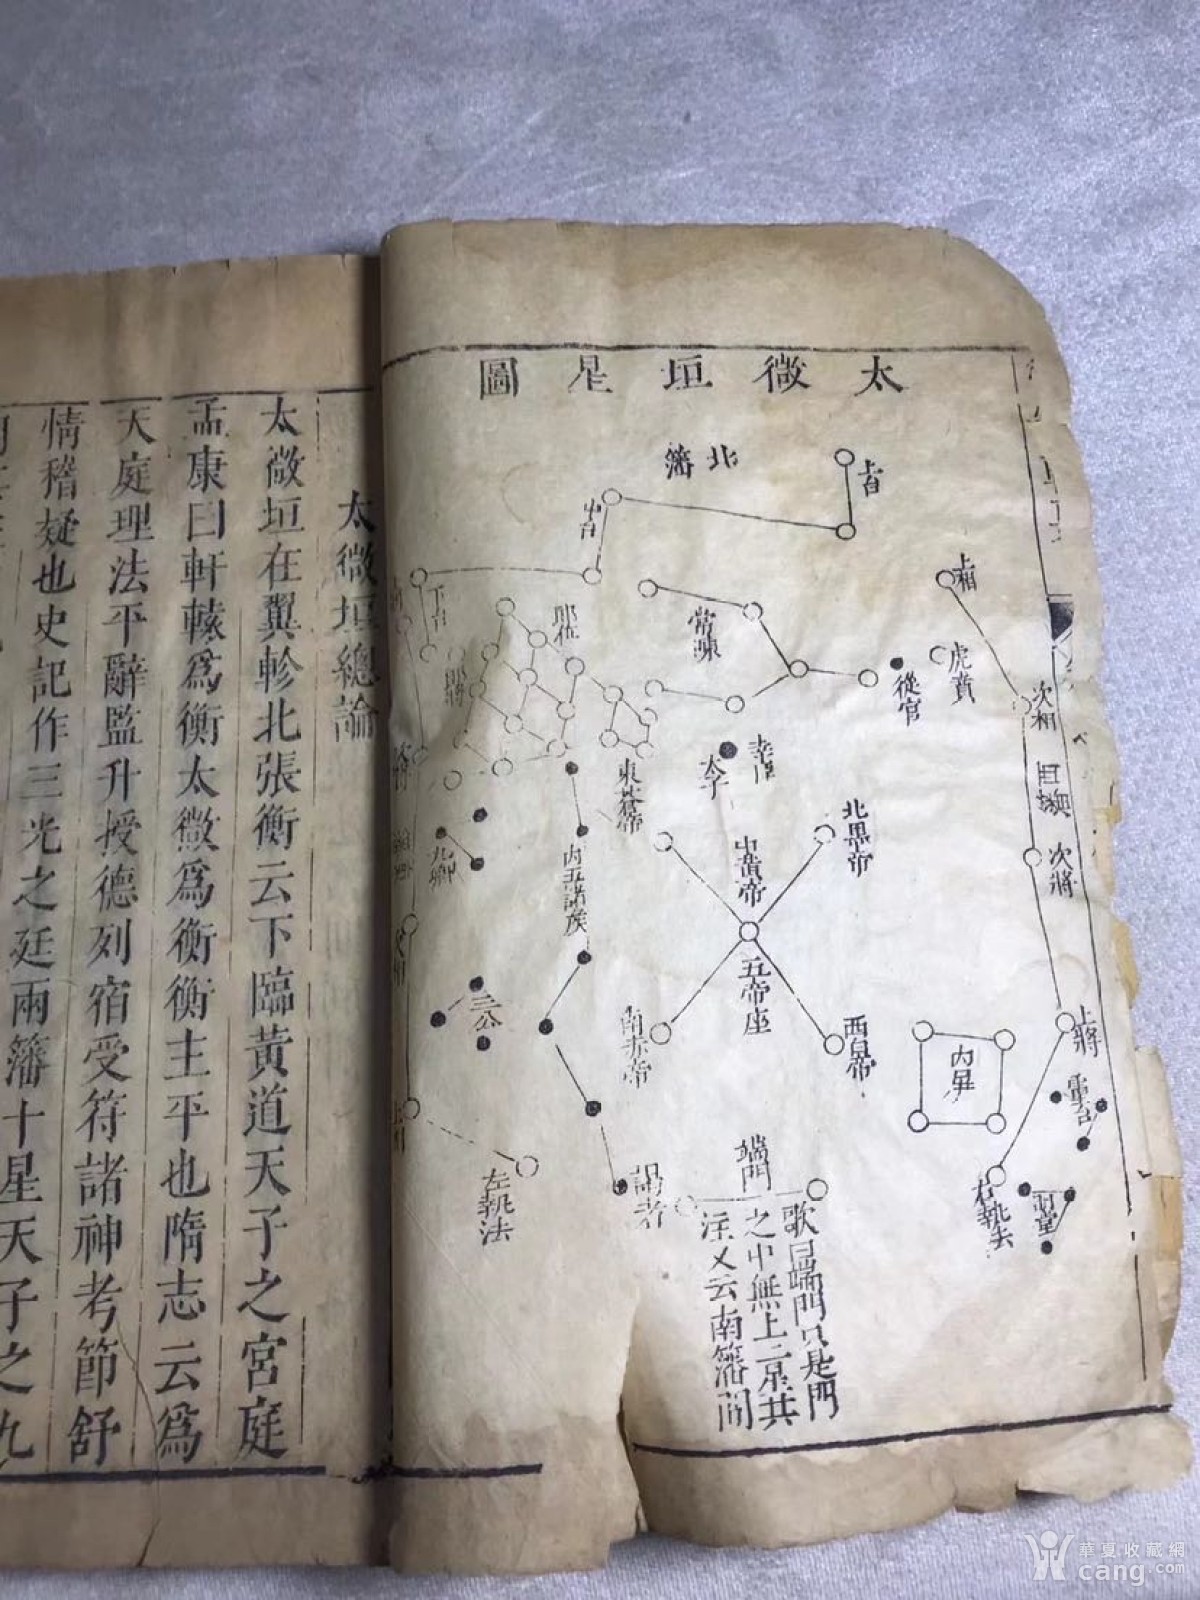 太微垣星圖
北藩
上台
中台
下台
上相
虎賁
次相
常陳
從官
郎位
郎將
幸臣
太子
次將
東蒼帝
北黑帝
中黃帝
五帝座
南赤帝
西白帝
九卿
內五諸侯
三公
上將
內屏
靈台
明堂
右執法
左執法
謁者
端門
歌曰端門只是門
之中無上二星共
注又云南籓間
太微垣總論
太微垣在翼軫北張衡云下臨黃道天子之宮庭
孟康曰軒轅爲衡太微爲衡衡主平也隋志云爲
天庭理法平辭監升授德列宿受符諸神考節舒
情稽疑也史記作三光之廷兩籓十星天子之九
華夏收藏網
cang.com